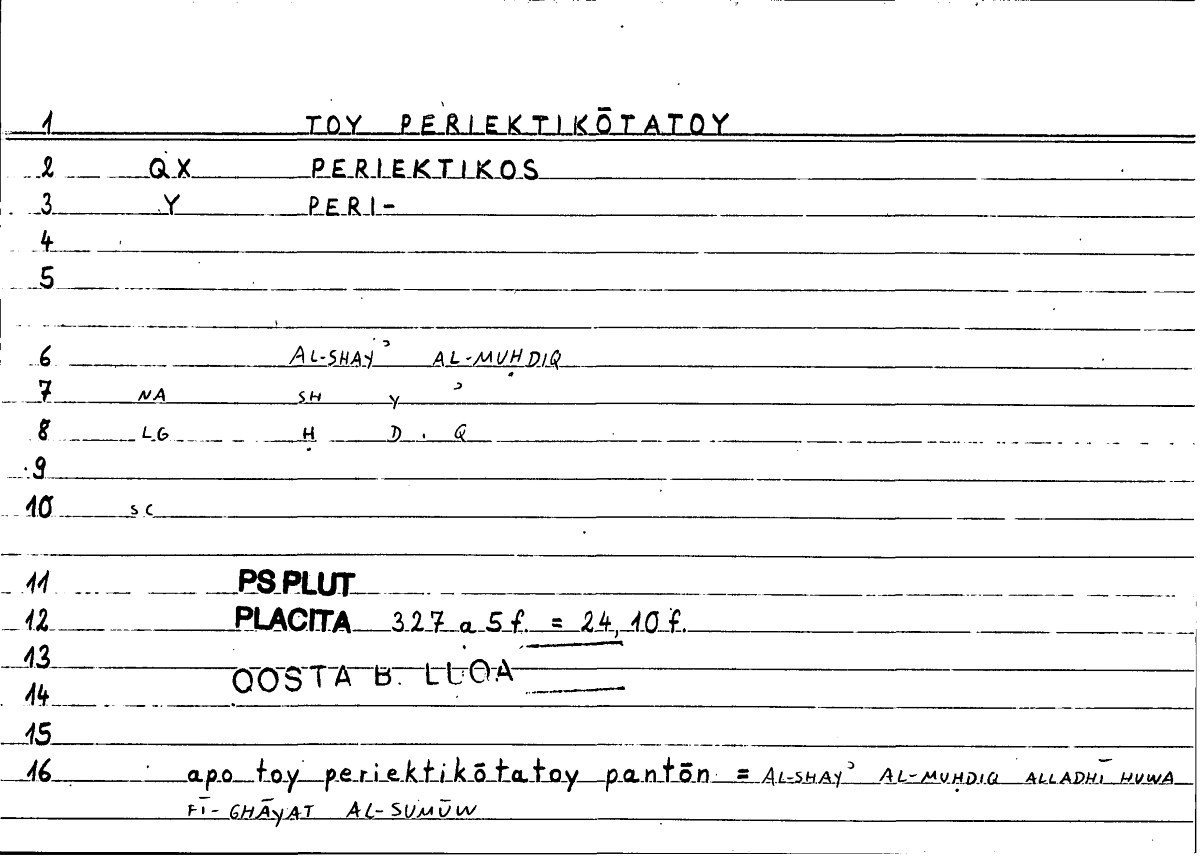 1 TOY PERIEKTIKŌTATOY
2 QX PERIEKTIKOS
3 Y PERI-
4
5
6 AL-SHAYʾ AL-MUḤDIQ
7 NA SH Y ʾ
8 LG Ḥ D . Q
9
10 SC
11 PS PLUT
12 PLACITA 327 a 5 f. = 24, 10 f.
13 QOSTA B. LUQA
14
15
16 apo toy periektikōtatoy pantōn = AL-SHAYʾ AL-MUḤDIQ ALLADHĪ HUWA
FĪ-GHĀYAT AL-SUMŪW